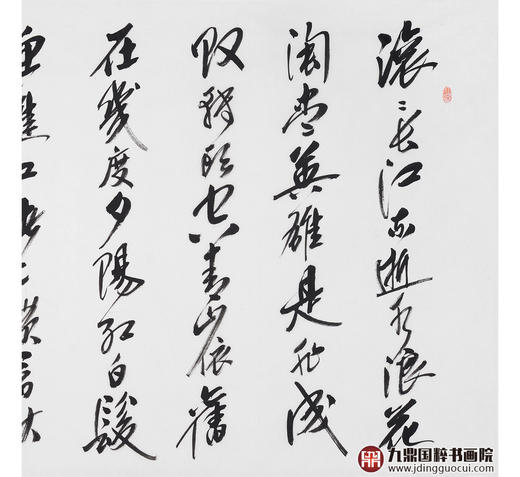 滚滚长江东逝水浪花
淘尽英雄是非成
败转头空青山依舊
在幾度夕陽红白髮
九鼎国粹书画院
www.jdingguocui.com